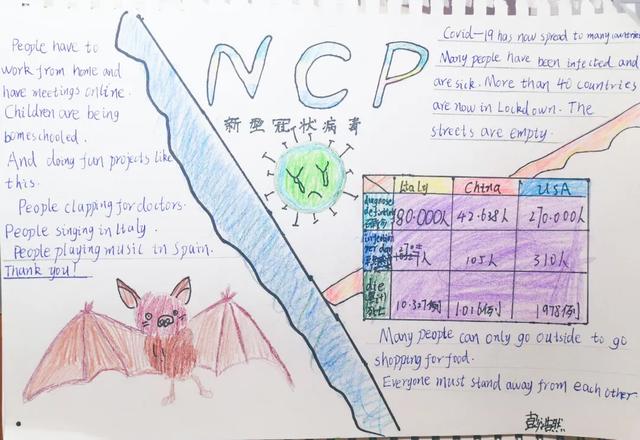 People have to
work from home and
have meetings online.
Children are being
homeschooled.
And doing fun projects like
this.
People clapping for doctors.
People singing in Italy.
People playing music in Spain.
Thank you!
NCP
新型冠状病毒
Covid-19 has now spread to many countries
Many people have been infected and
are sick. More than 40 countries
are now in Lockdown. The
streets are empty.
Italy China USA
80.000人 42.638人 270.000人
per day 人 105人 310人
die
累计
死亡
10.327例 1016例 1978例
Many people can only go outside to go
shopping for food.
Everyone must stand away from each other